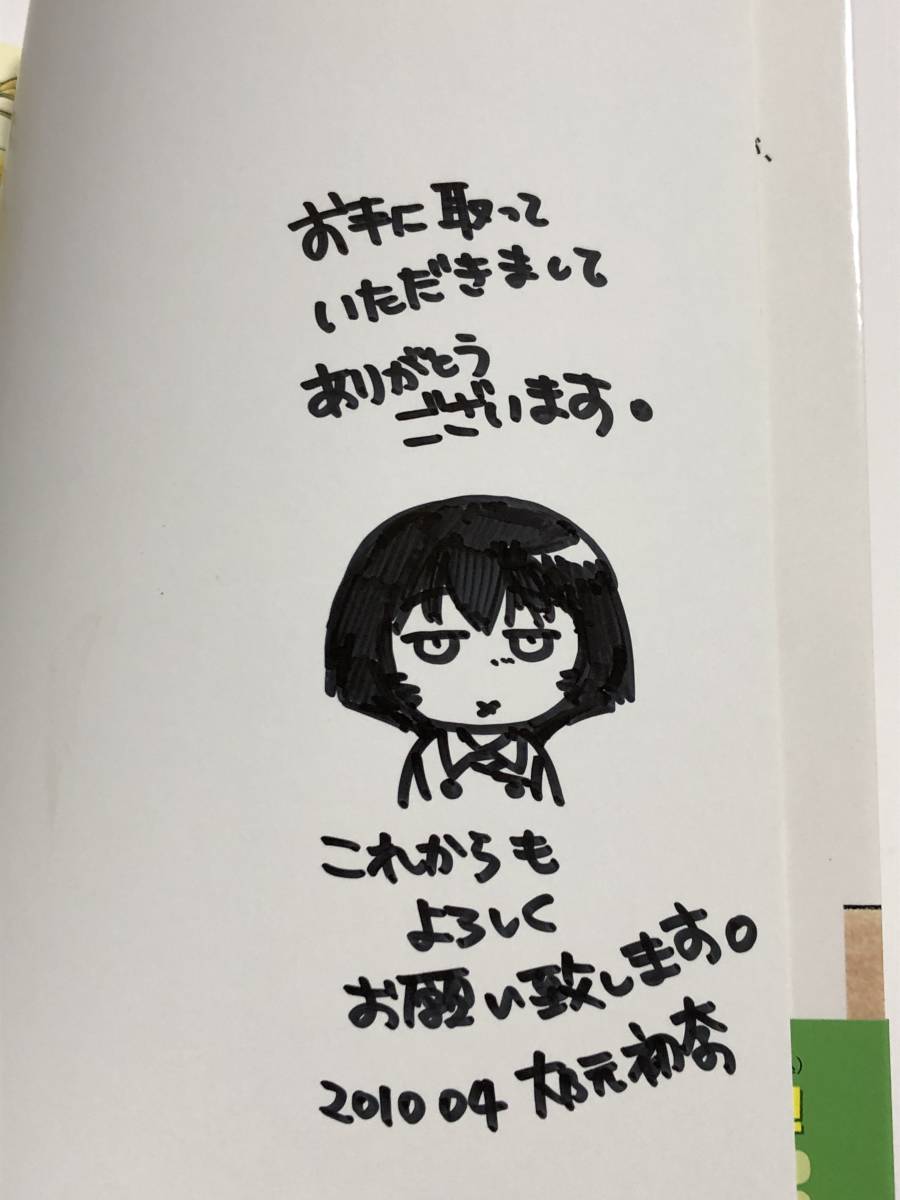 お手に取って
いただきまして
ありがとう
ございます。
これからも
よろしく
お願い致します。
2010 04 大乃元初奈